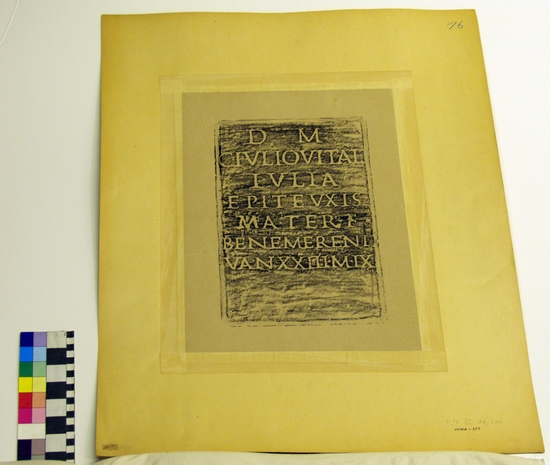 176
D M
C IVLIO VITALI
IVLIA
EPITEVXIS
MATER
BENEMERENTI
V AN XXIII M IX